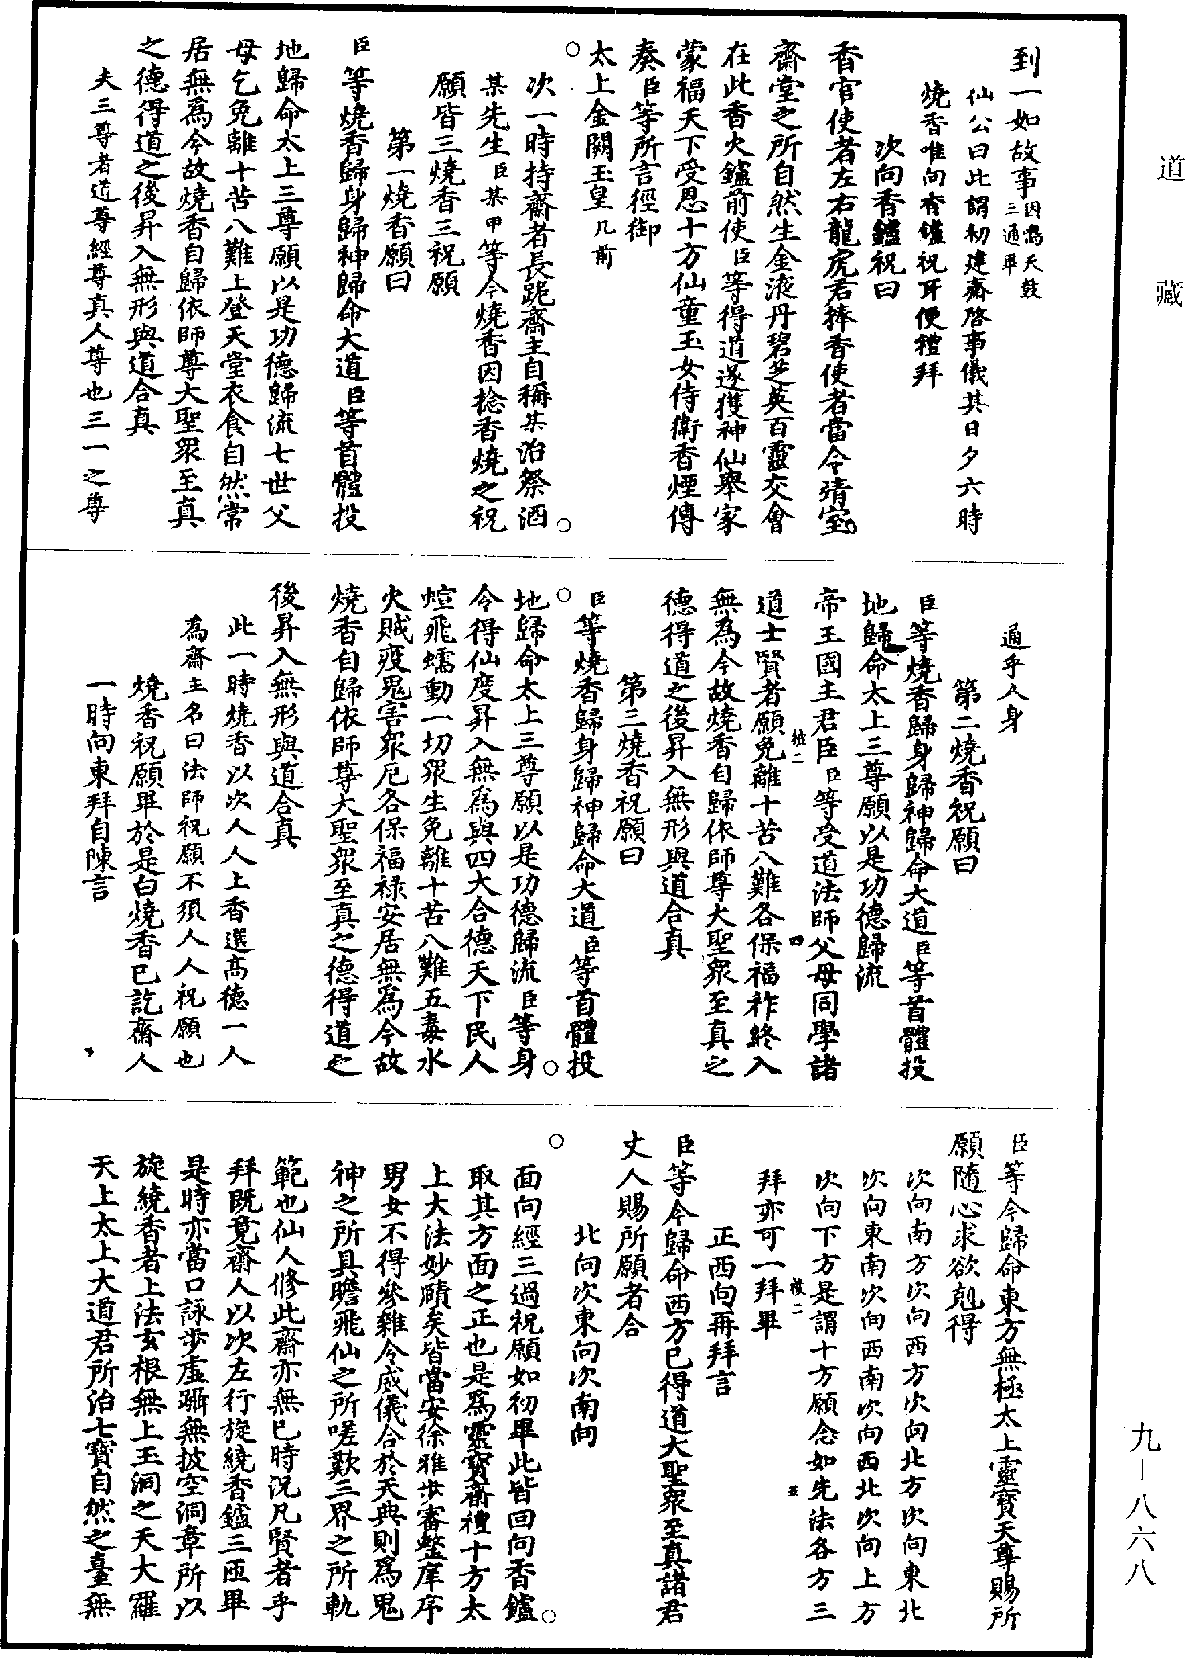 道藏
到一如故事因鳴天鼓三通畢
仙公曰此謂初建齋啓事儀其日夕六時
燒香唯向香鑪祝耳便禮拜
次向香鑪祝曰
香官使者左右龍虎君捧香使者當令靖室
齋堂之所自然生金液丹碧芝英百靈交會
在此香火鑪前使臣等得道遂獲神仙舉家
蒙福天下受恩十方仙童玉女侍衛香煙傳
奏臣等所言徑御
太上金闕玉皇几前
次一時持齋者長跪齋主自稱某治祭酒
某先生臣某甲等今燒香因捻香燒之祝
願皆三燒香三祝願
第一燒香願曰
臣等燒香歸身歸神歸命大道臣等首體投
地歸命太上三尊願以是功德歸流七世父
母乞免離十苦八難上登天堂衣食自然常
居無爲今故燒香自歸依師尊大聖眾至真
之德得道之後昇入無形與道合真
夫三尊者道尊經尊真人尊也三一之尊
通乎人身
第二燒香祝願曰
臣等燒香歸身歸神歸命大道臣等首體投
地歸命太上三尊願以是功德歸流
帝王國主君臣臣等受道法師父母同學諸
道士賢者願免離十苦八難各保福祚終入
無為今故燒香自歸依師尊大聖眾至真之
德得道之後昇入無形與道合真
第三燒香祝願曰
臣等燒香歸身歸神歸命大道臣等首體投
地歸命太上三尊願以是功德歸流臣等身
今得仙度昇入無爲與四大合德天下民人
蝖飛蠕動一切眾生免離十苦八難五毒水
火賊疫鬼害眾厄各保福祿安居無爲今故
燒香自歸依師尊大聖眾至真之德得道之
後昇入無形與道合真
此一時燒香以次人人上香選高德一人
爲齋主名曰法師祝願不須人人祝願也
燒香祝願畢於是白燒香已訖齋人
一時向東拜自陳言
臣等今歸命東方無極太上靈寶天尊賜所
願隨心求欲剋得
次向南方次向西方次向北方次向東北
次向東南次向西南次向西北次向上方
次向下方是謂十方願念如先法各方三
拜亦可一拜畢
正西向再拜言
臣等今歸命西方已得道大聖眾至真諸君
丈人賜所願者合
北向次東向次南向
面向經三過祝願如初畢此皆回向香鑪
取其方面之正也是爲靈寶齋禮十方太
上大法妙賾矣皆當安徐雅步審整庠序
男女不得參雜今威儀合於天典則爲鬼
神之所具瞻飛仙之所嗟歎三界之所軌
範也仙人修此齋亦無已時況凡賢者乎
拜既竟齋人以次左行旋繞香鑪三匝畢
是時亦當口詠步虛躡無披空洞章所以
旋繞香者上法玄根無上玉洞之天大羅
天上太上大道君所治七寶自然之臺無
九－八六八